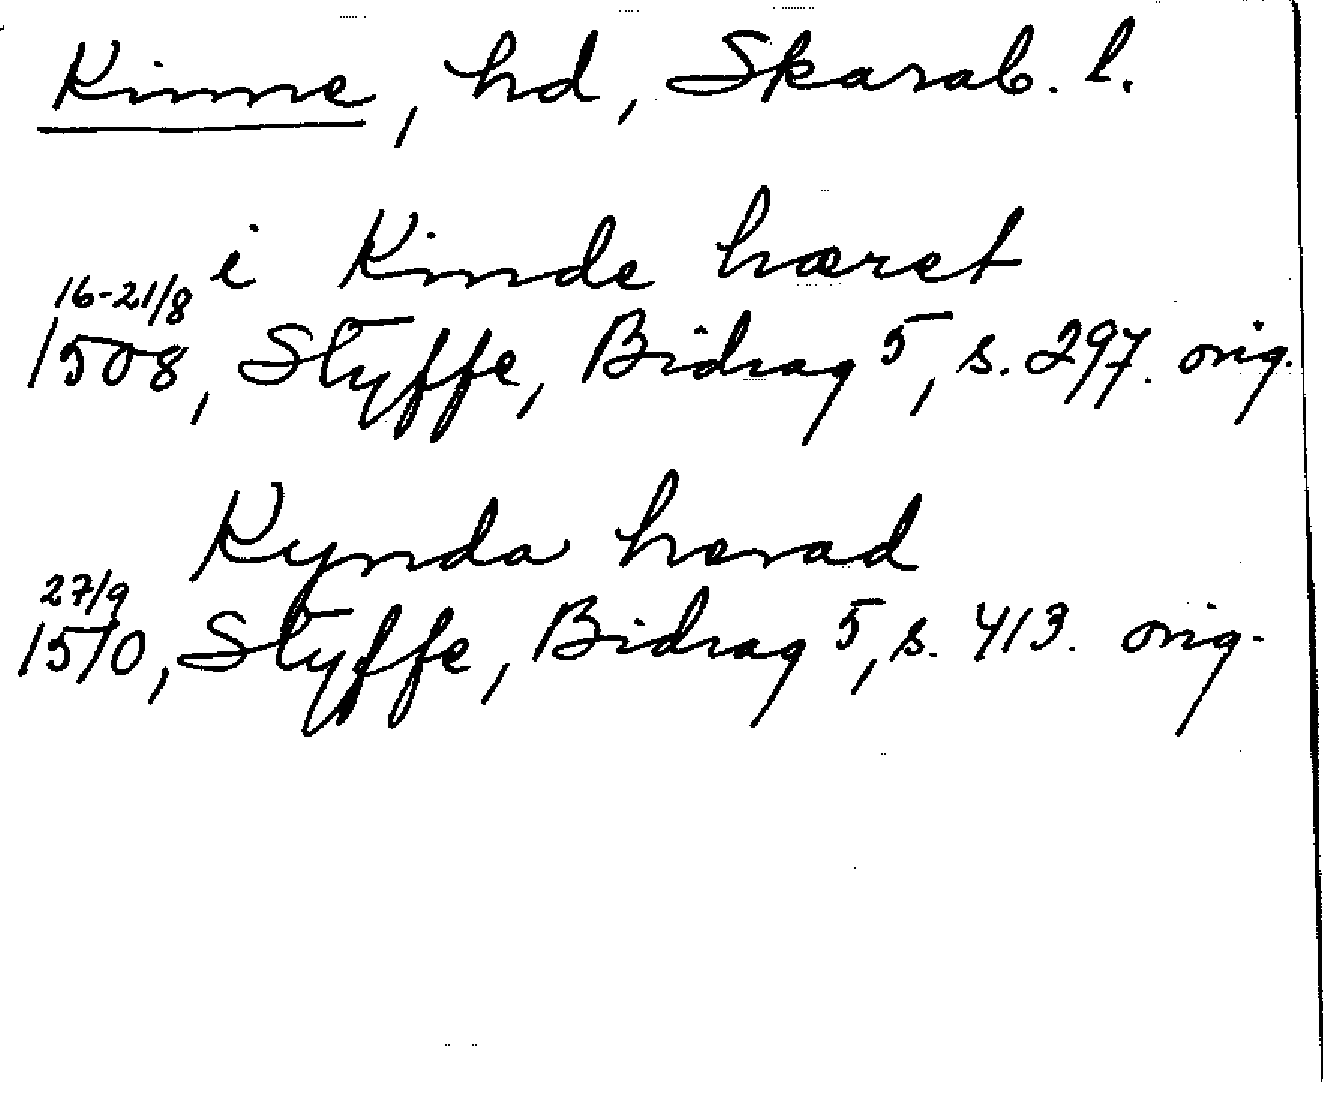 Kinne, hd, Skarab. l.
i Kinde hæret
16-21/8
1508, Styffe, Bidrag 5, s. 297. orig.
Kynda herad
27/9
1510, Styffe, Bidrag 5, s. 413. orig.